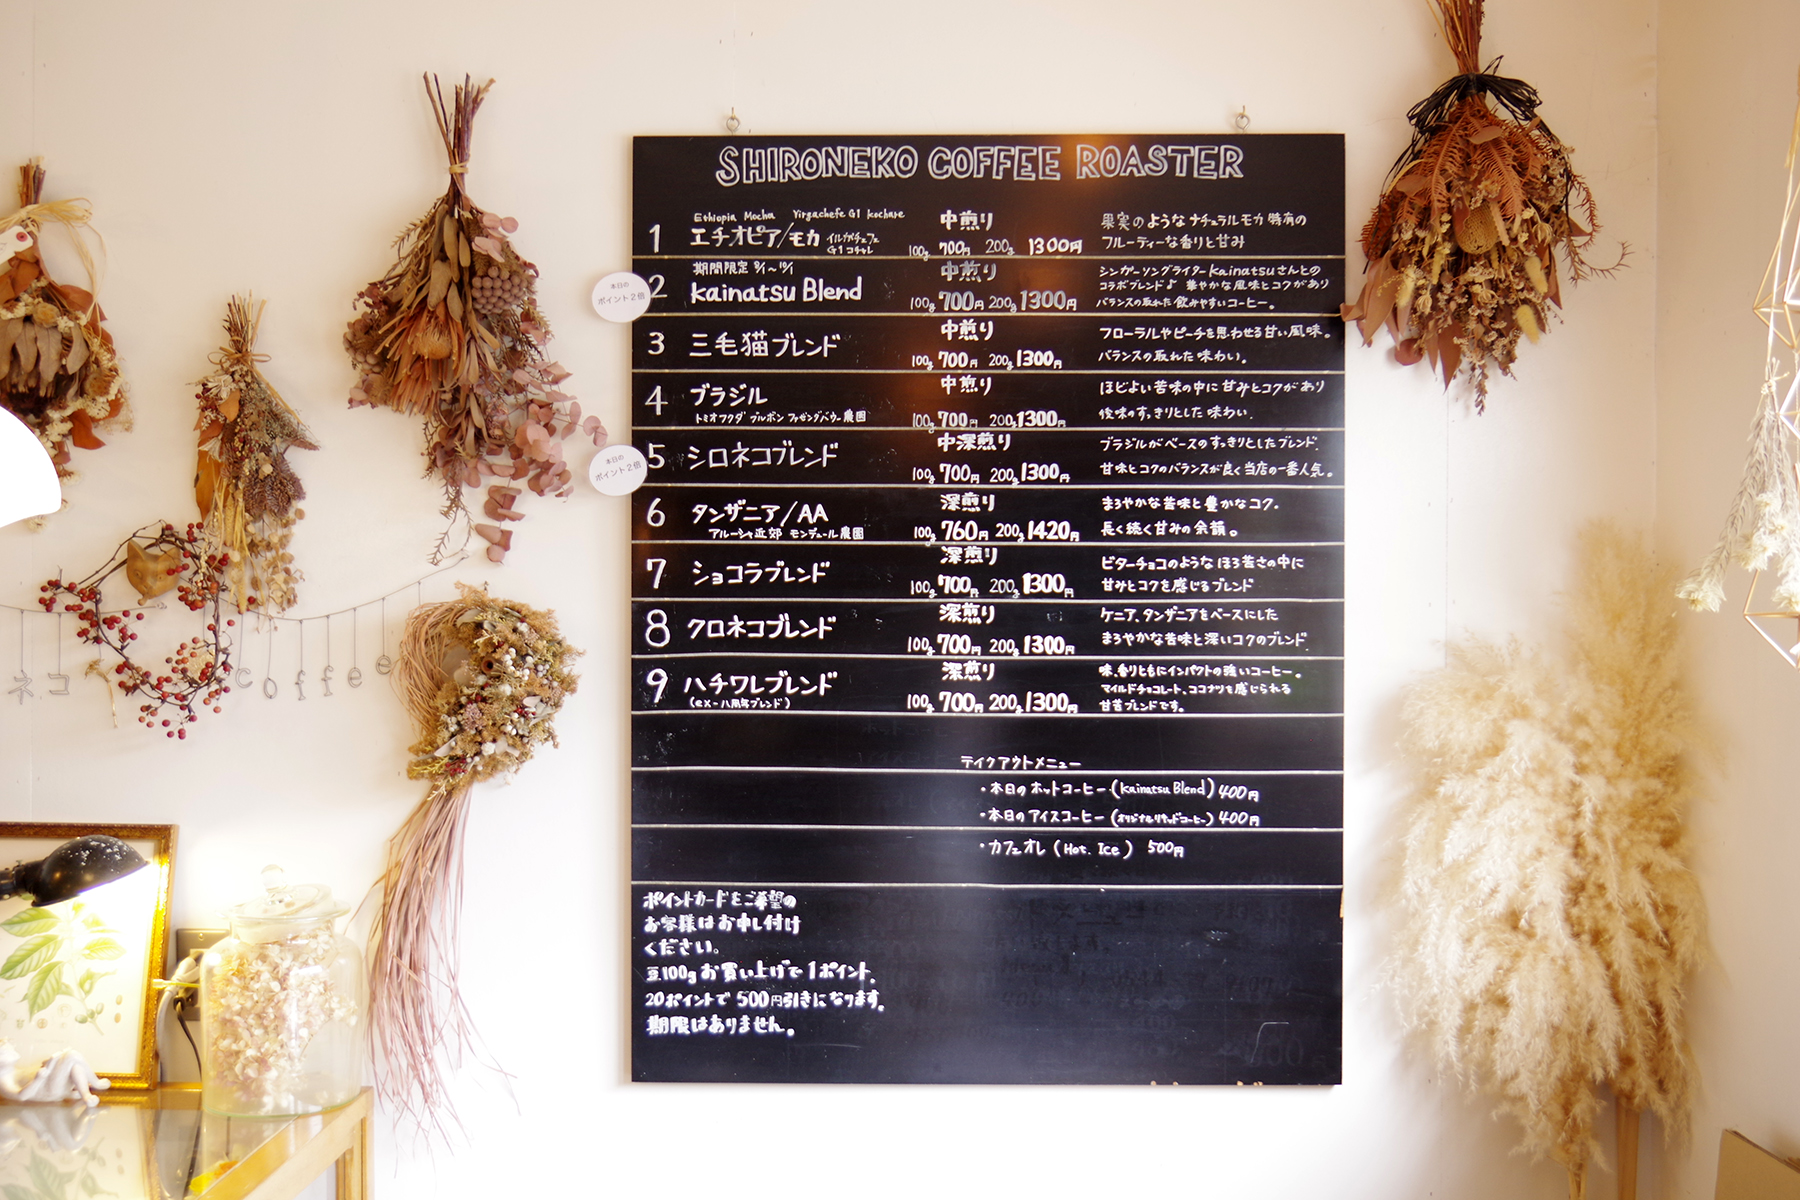 SHIRONEKO COFFEE ROASTER
1
Ethiopia Mocha Yirgachefe G1 kochare
エチオピア/モカ イルガチェフェ
G1 コチャレ
中煎り
100g 700円 200g 1300円
果実のような ナチュラルモカ 特有の
フルーティーな香りと甘み
本日の
ポイント2倍
2
期間限定 9/1〜10/1
kainatsu Blend
中煎り
100g 700円 200g 1300円
シンガーソングライター kainatsuさんとの
コラボブレンド♪ 華やかな風味とコクがあり
バランスの取れた飲みやすいコーヒー。
3
三毛猫ブレンド
中煎り
100g 700円 200g 1300円
フローラルやピーチを思わせる甘い風味。
バランスの取れた味わい。
4
ブラジル
トミオフクダ ブルボン ファゼンダバウー農園
中煎り
100g 700円 200g 1300円
ほどよい苦味の中に甘みとコクがあり
後味のすっきりとした味わい.
本日の
ポイント2倍
5
シロネコブレンド
中深煎り
100g 700円 200g 1300円
ブラジルがベースのすっきりとしたブレンド.
甘味とコクのバランスが良く当店の一番人気。
6
タンザニア/AA
アルーシャ近郊 モンデュール農園
深煎り
100g 760円 200g 1420円
まろやかな苦味と豊かなコク.
長く続く甘みの余韻。
7
ショコラブレンド
深煎り
100g 700円 200g 1300円
ビターチョコのようなほろ苦さの中に
甘みとコクを感じるブレンド
8
クロネコブレンド
深煎り
100g 700円 200g 1300円
ケニア、タンザニアをベースにした
まろやかな苦味と深いコクのブレンド.
9
ハチワレブレンド
(ex-八周年ブレンド)
深煎り
100g 700円 200g 1300円
味、香りともにインパクトの強いコーヒー。
マイルドチョコレート、ココナツを感じられる
甘苦ブレンドです。
テイクアウトメニュー
・本日のホットコーヒー(kainatsu Blend) 400円
・本日のアイスコーヒー(オリジナルリキッドコーヒー) 400円
・カフェオレ(Hot. Ice) 500円
ポイントカードをご希望の
お客様はお申し付け
ください。
豆100gお買い上げで1ポイント.
20ポイントで500円引きになります。
期限はありません。
ネコ coffee